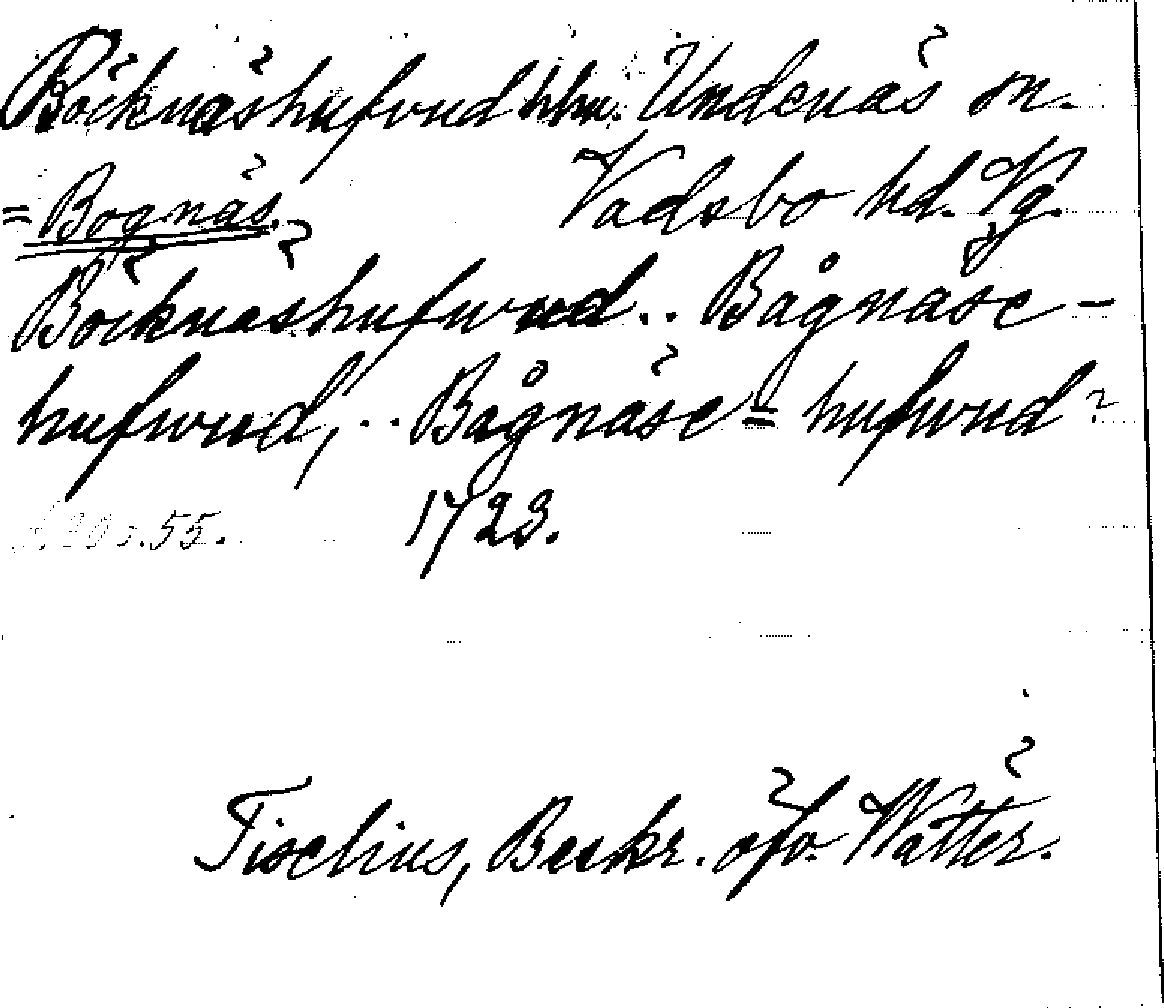 Böcknäshufvud hlm. Undenäs sn.
= Bognäs. Vadsbo hd. Vg.
Böcknäshufwud .. Bågnäse-
hufwud, .. Bågnäse = hufwud
55. 1723.
Tiselius, Beskr. öfv. Wätter.